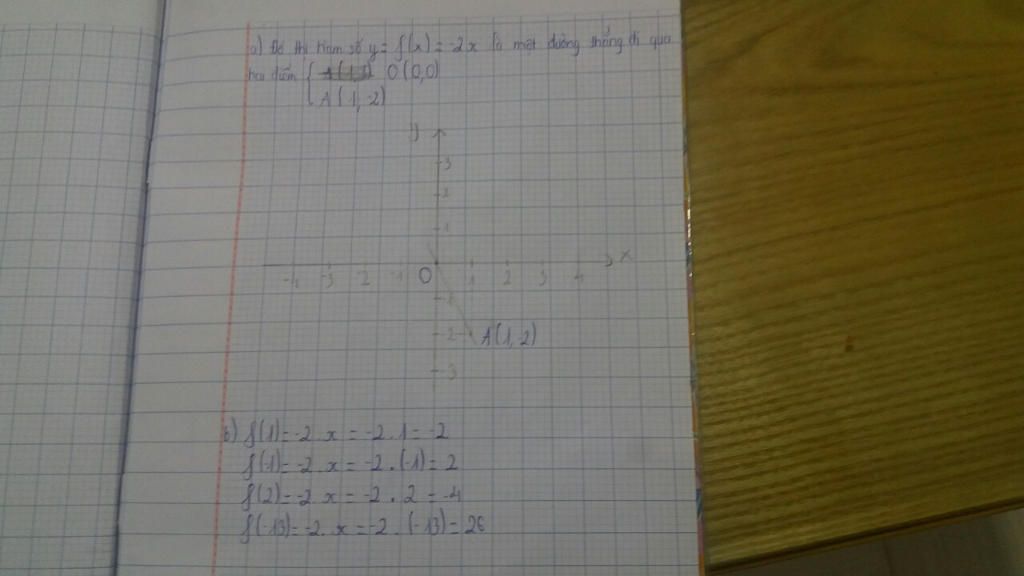 a) Đồ thị hàm số y = f(x) = -2x là một đường thẳng đi qua
hai điểm { O(0,0)
A(1,-2)
y
3
2
1
-4 -3 -2 -1 O 1 2 3 4 x
-1
-2 A(1,-2)
-3
b) f(1) = -2.x = -2.1 = -2
f(-1) = -2.x = -2.(-1) = 2
f(2) = -2.x = -2.2 = -4
f(-13) = -2.x = -2.(-13) = 26